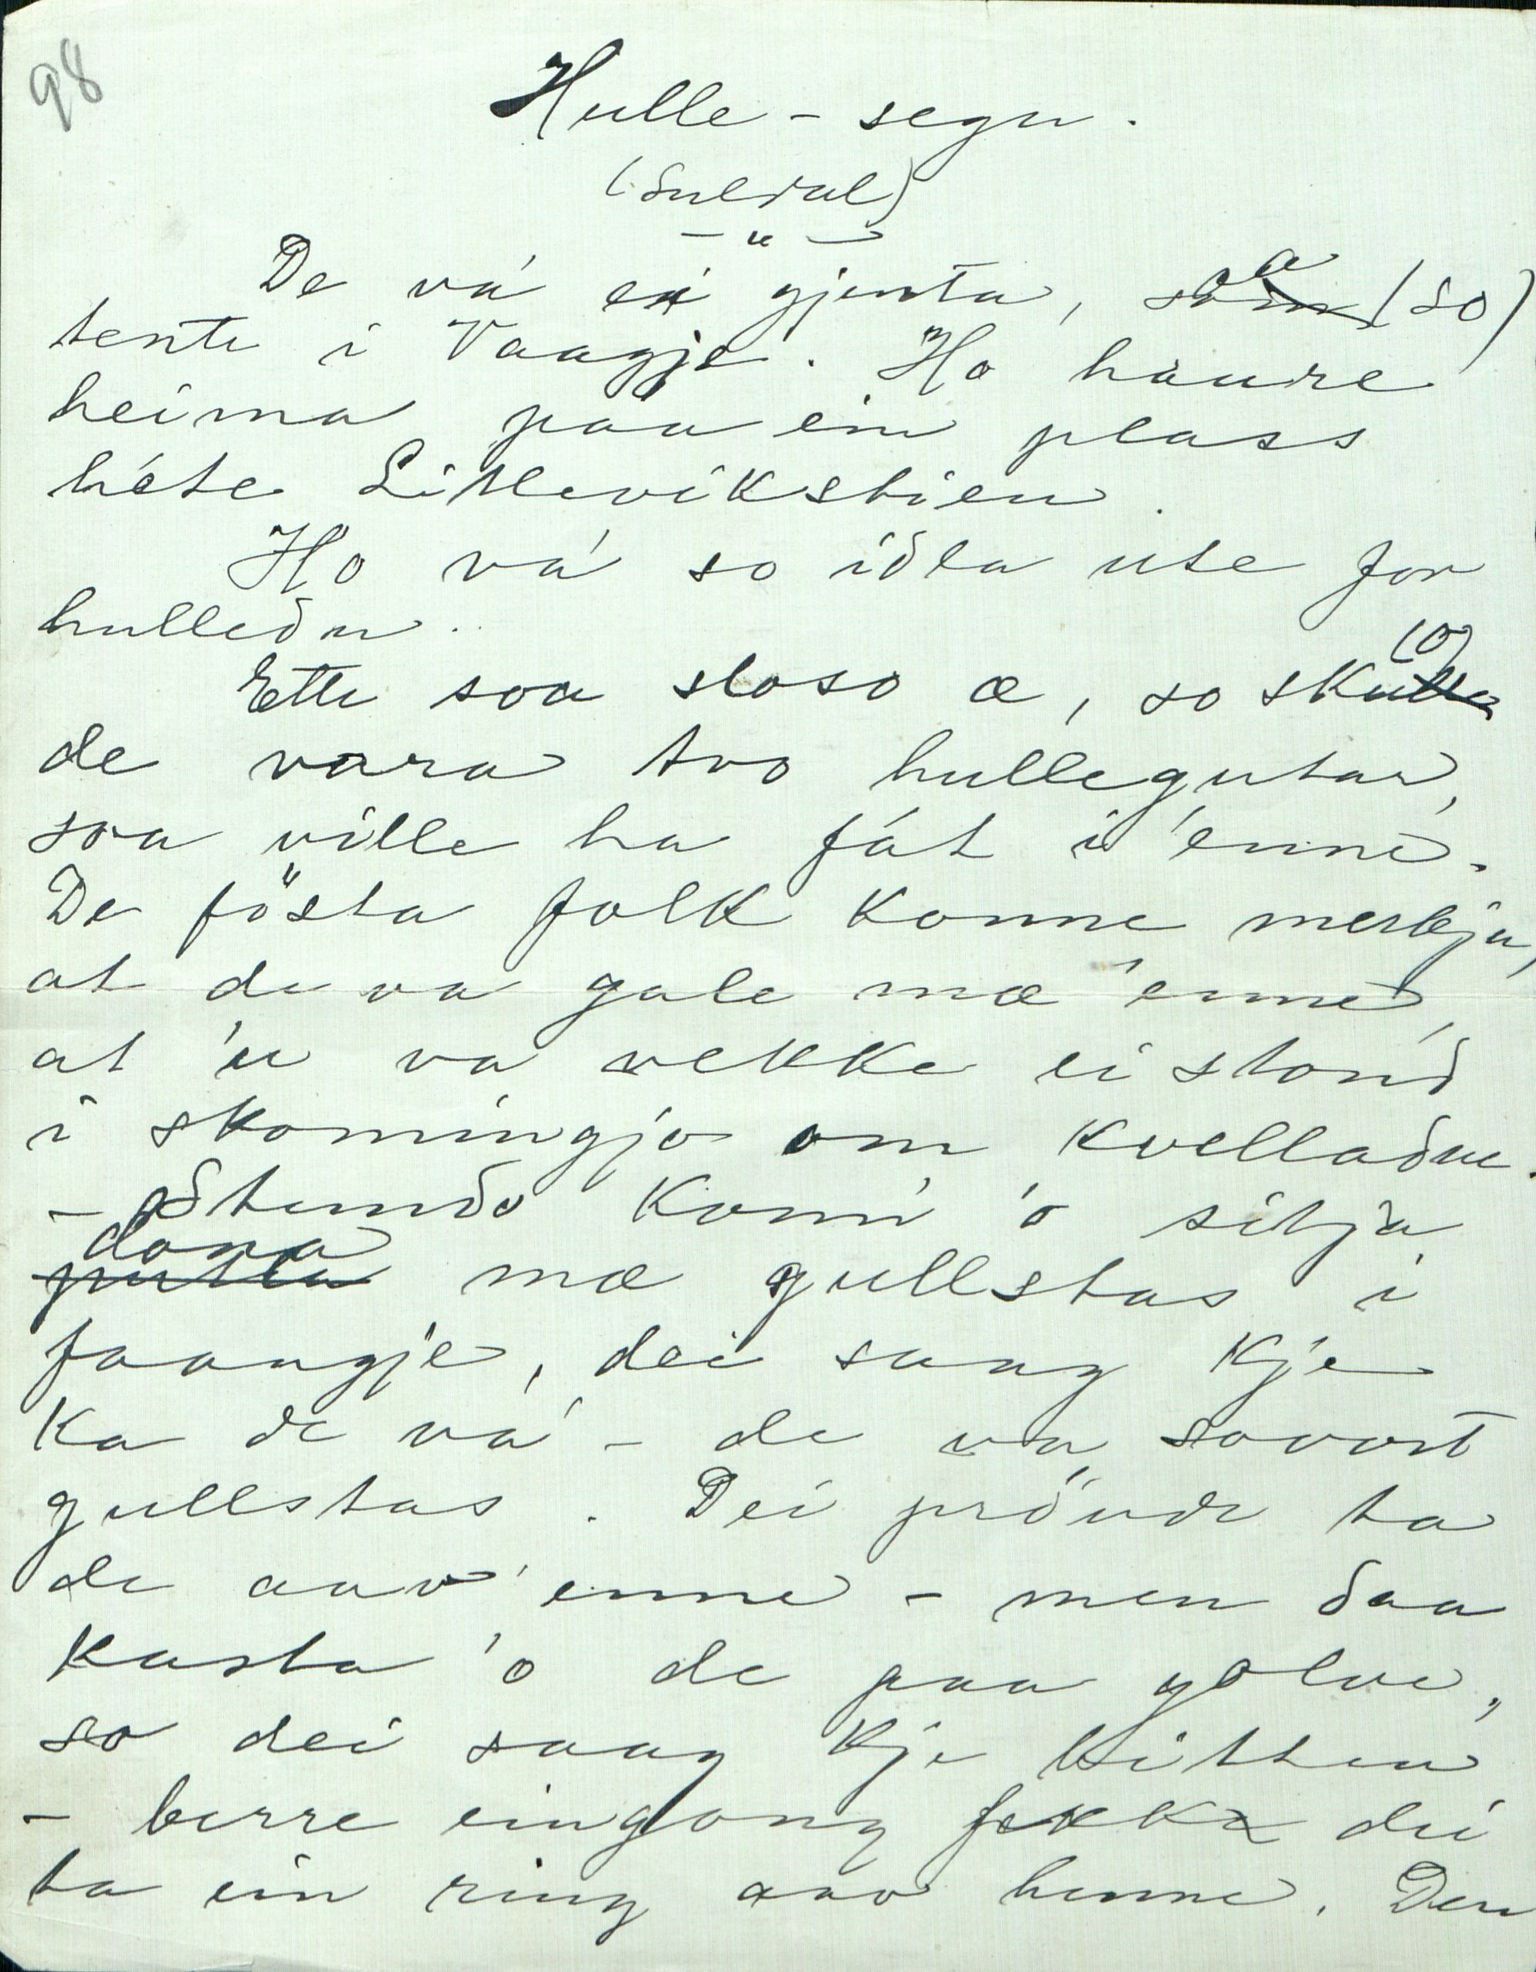 98
Hulle - segn.
(Suldal)
— " —
De vá ei gjenta, soa (so)
tente i Vaagje. Ho haure
heima paa ein plass
héte Litlevikstien.
Ho vá so idla ute for
hulleðn.
Ette soa sloso æ, so sku (o)
de vara tvo hullegutar,
soa ville ha fát i 'enne.
De fösta folk konne merkja,
at de va gale mæ 'enne,
at 'u va vekke ei stond
i skomingjo om kvellaðne.
- Stundo kom 'o sitja
dona mæ gullstas i
faangje, dei saag kje
ka de vá - de va sovort
gullstas. Dei prövde ta
de aav 'enne - men ðaa
kasta 'o de paa golve,
so dei saag kje litten
- berre eingong fekk dei
ta ein ring aav henne. Den